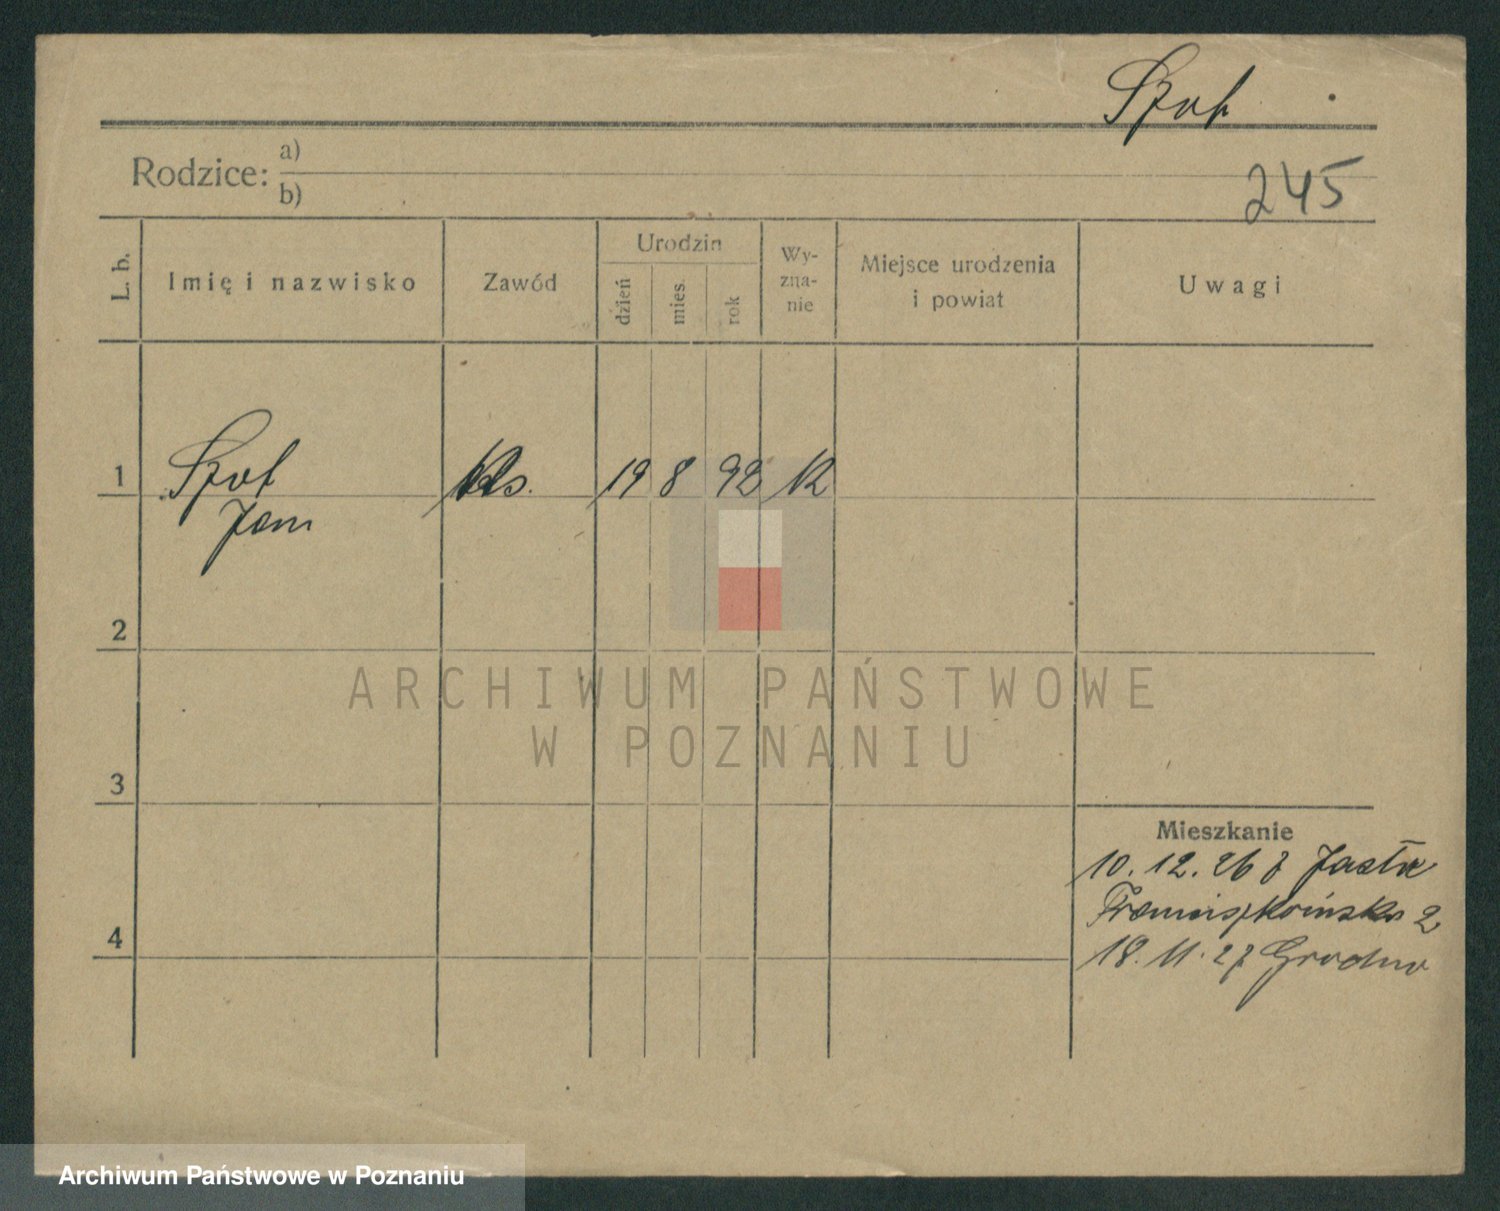 Szot
Rodzice: a)
b)
245
L. b.
Imię i nazwisko
Zawód
Urodzin
dzień
mies.
rok
Wy-
zna-
nie
Miejsce urodzenia
i powiat
Uwagi
1 Szot 19 8 92 K
Jan
2
3
4
Mieszkanie
10. 12. 26 z
Franciszkańska 2
18. 11. 27 Grodno
ARCHIWUM PAŃSTWOWE
W POZNANIU
Archiwum Państwowe w Poznaniu